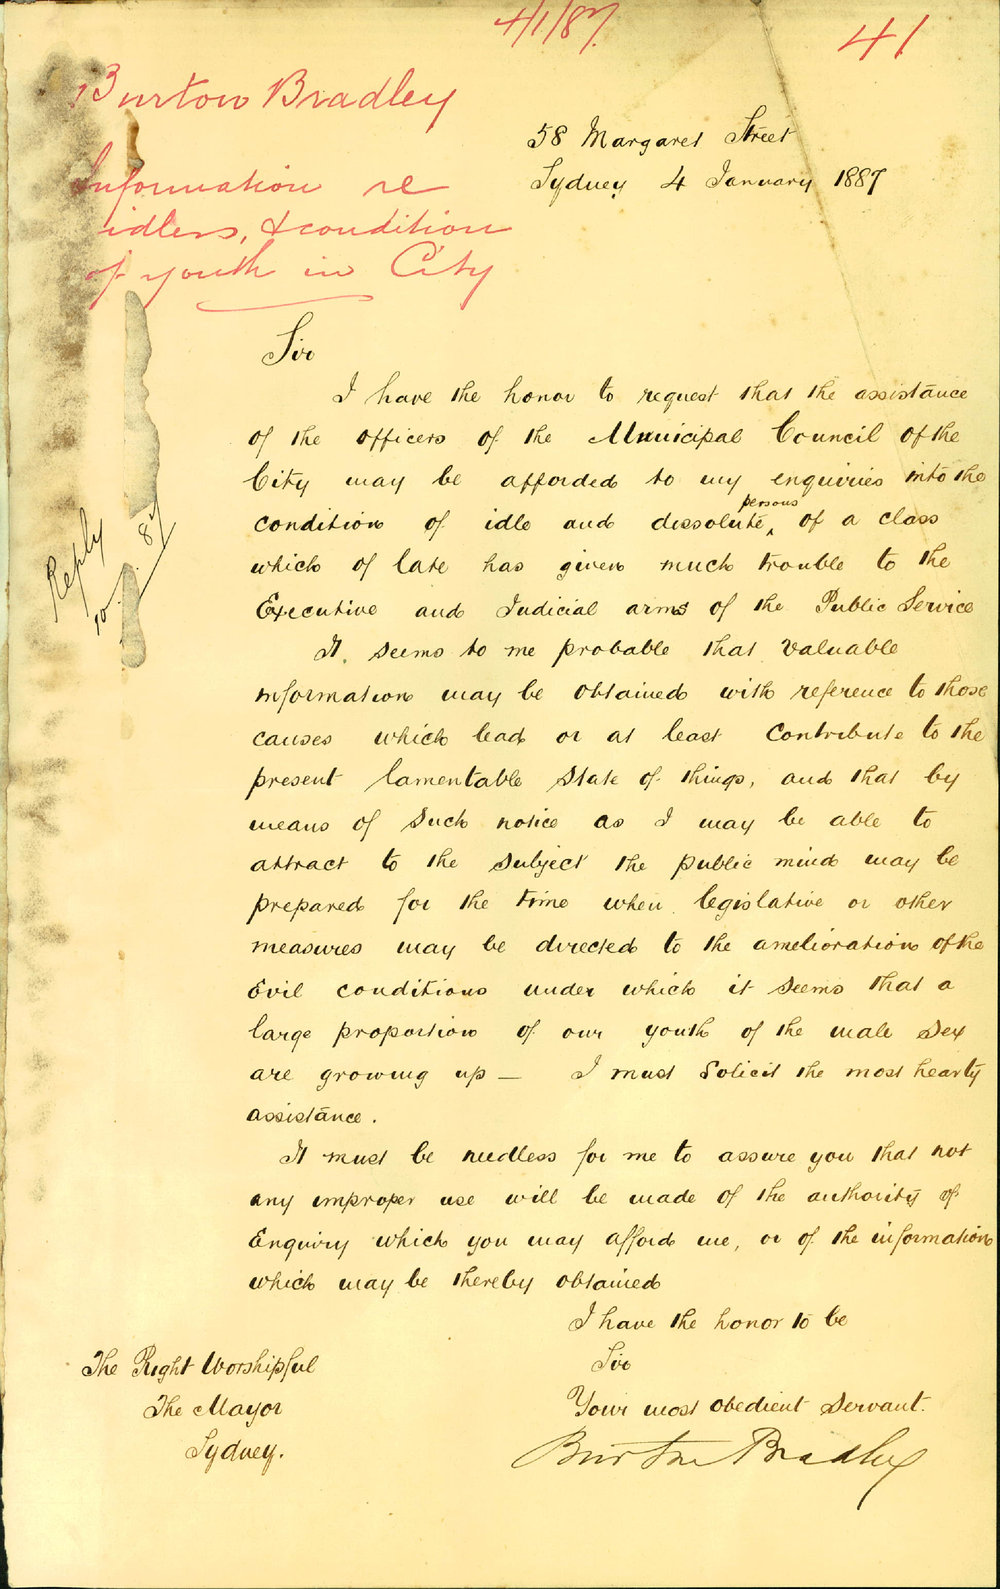 4/1/87.
41
Burton Bradley
Information re
idlers, & condition
of youth in City
58 Margaret Street
Sydney 4 January 1887
Sir
I have the honor to request that the assistance
of the officers of the Municipal Council of the
City may be afforded to my enquiries into the
persons
condition of idle and dissolute ‸ of a class
which of late has given much trouble to the
Executive and Judicial arms of the Public Service
It seems to me probable that valuable
information may be obtained with reference to those
causes which lead or at least contribute to the
present lamentable state of things, and that by
means of such notice as I may be able to
attract to the subject the public mind may be
prepared for the time when legislative or other
measures may be directed to the amelioration of the
Evil conditions under which it seems that a
large proportion of our youth of the male sex
are growing up — I must solicit the most hearty
assistance.
It must be needless for me to assure you that not
any improper use will be made of the authority of
Enquiry which you may afford me, or of the information
which may be thereby obtained
I have the honor to be
Sir
Your most obedient servant.
Burton Bradley
The Right Worshipful
The Mayor
Sydney.
Reply
10. 87